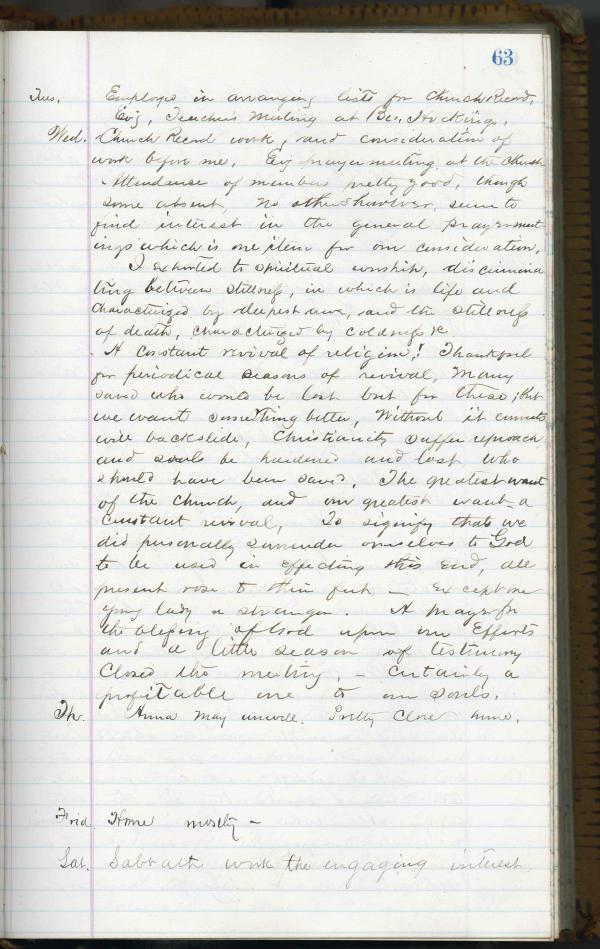 63
Tues. Employed in arranging lists for Church Record.
Ev'g, Teachers Meeting at Bro.
Wed. Church Record work, and consideration of
work before me. Ev'g prayermeeting at the Church
Attendance of members pretty good, though
some absent. No others however seem to
find interest in the general prayermeet
ings which is one item for our consideration.
I exhorted to spiritual worship, discrimina
ting between stillness, in which is life and
characterized by deepest awe, and the stillness
of death, characterized by coldness &c
A constant revival of religion! Thankful
for periodical seasons of revival. Many
saved who would be lost but for these; But
we want something better, Without it converts
will backslide, Christianity suffer reproach,
and souls be hardened and lost who
should have been saved. The greatest want
of the Church, and our greatest want - a
constant revival, To signify that we
did personally surrender ourselves to God
to be used in effecting this End, all
present rose to their feet, — Except one
young lady a stranger. A prayer for
the blessing of God upon our Efforts
and a little season of testimony
Closed the meeting, - Certainly a
profitable one to our souls.
Th. Anna May unwell. Pretty close home.
Frid. Home mostly —
Sat. Sabbath work the engaging interest